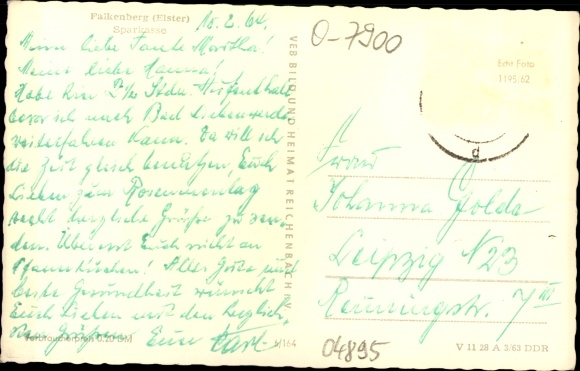 Falkenberg (Elster)
Sparkasse
16. 2. 64.
Meine liebe Tante Martha!
Meine liebe Hanna!
Habe hier 2½ Stdn. Aufenthalt
bevor ich nach Bad Liebenwerda
weiterfahren kann. Da will ich
die Zeit gleich benützen, Euch
Lieben zum Rosenmontag
recht herzliche Grüße zu sen-
den. Überesst Euch nicht an
Pfannkuchen! Alles Gute und
beste Gesundheit wünscht
Euch Lieben mit den herzlich-
sten Grüßen Euer Karl.
Verbraucherpreis 0,20 DM
VEB BILD UND HEIMAT REICHENBACH i. V.
0-7900
Echt Foto
1195/62
Frau
Johanna Golde
Leipzig N 23
Renningstr. 7 III
04895
V 11 28 A 3/63 DDR